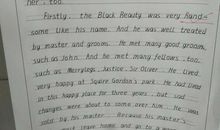 her, too.
Firstly, the Black Beauty was very hand-
some like his name. And he was well treated
by master and grooms. He met many good grooms,
such as John. And he met many fellows, too,
such as Merrylegs, Justice, Sir Oliver. He lived
very happy at Squire Gordon's park. He had lived
in this happy place for three years, but sad
changes were about to come over him. He was
sold by his master. Because his master's
leave home and go to a